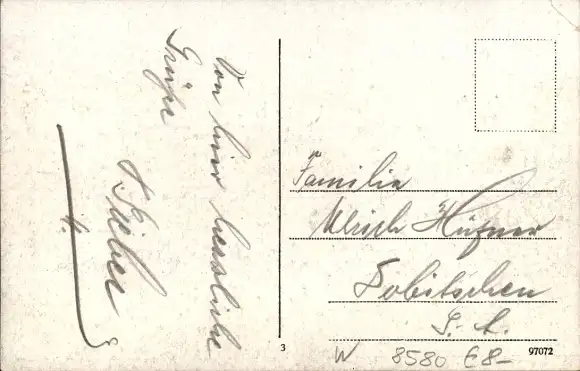 Von hier herzliche
Grüße
Familie
Ulrich Hüfner
Dobitschen
S.-A.
3
97072
W 8580 E8-